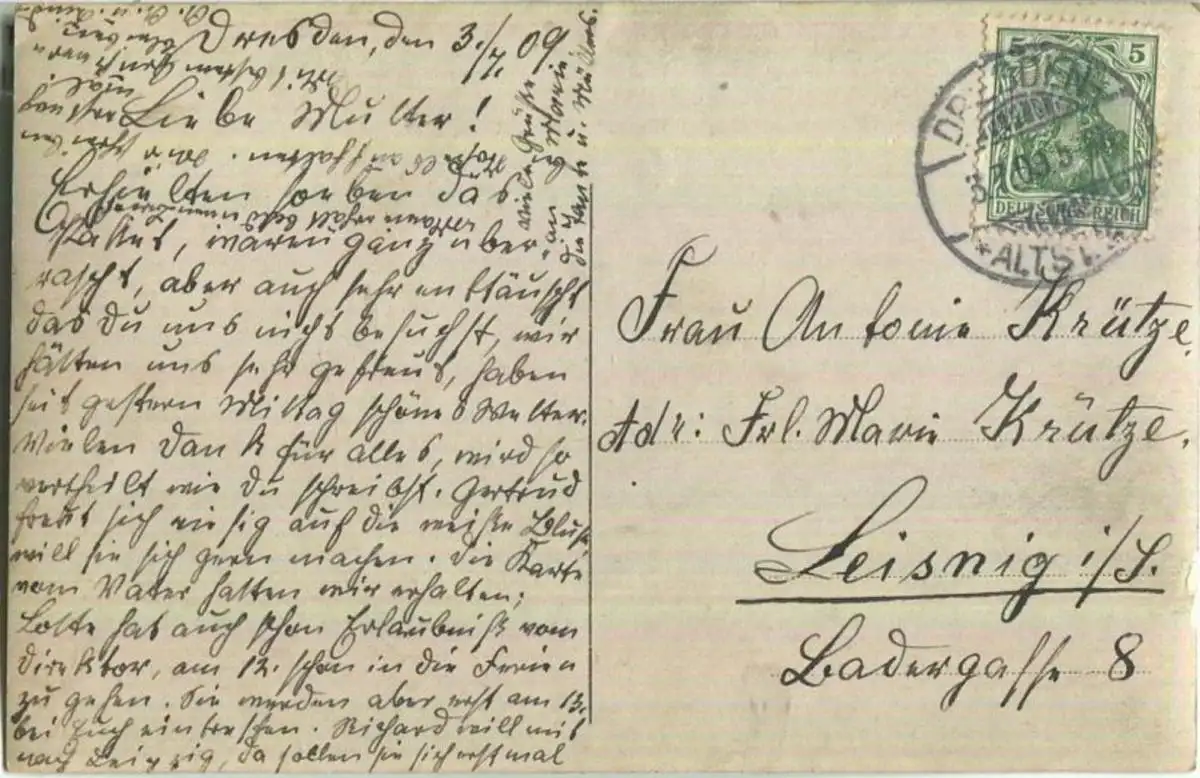 Dresden, den 3./7. 09
Liebe Mutter!
Erhielten soeben das
Packet, waren ganz über-
rascht, aber auch sehr enttäuscht
das Du uns nicht besuchst, wir
hätten uns sehr gefreut, haben
seit gestern Mittag schönes Wetter.
Vielen Dank für alles, wird so
vertheilt wie Du schreibst. Gertrud
freut sich riesig auf die weiße Bluse,
will sie sich gern machen. Die Karte
vom Vater hatten wir erhalten;
Lotte hat auch schon Erlaubniß vom
Direktor, am 12. schon in die Ferien
zu gehen. Sie werden aber erst am 13.
bei Euch eintreffen. Richard will mit
nach Leipzig, da sollen sie sich erst mal
aufhalten. Wir
viele Grüße
an Marie
die Tante u.
5 5
DEUTSCHES REICH
DRESDEN
ALTST.
Frau Antonie Krütze.
Adr: Frl. Marie Krütze.
Leisnig i/S.
Badergasse 8